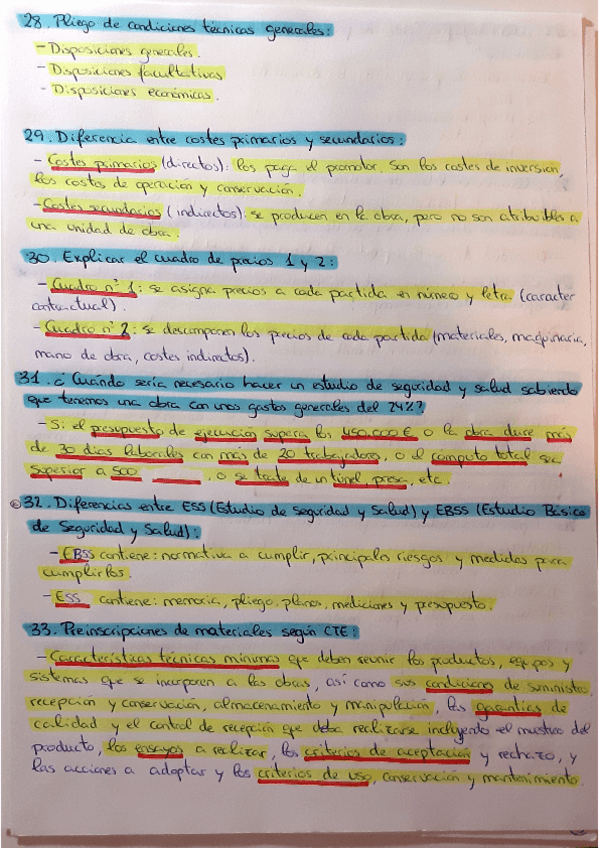 28. Pliego de condiciones técnicas generales:
- Disposiciones generales.
- Disposiciones facultativas
- Disposiciones económicas.
29. Diferencia entre costes primarios y secundarios:
- Costes primarios (directos): los paga el promotor. Son los costes de inversión,
los costos de operación y conservación.
- Costes secundarios (indirectos): se producen en la obra, pero no son atribuibles a
una unidad de obra.
30. Explicar el cuadro de precios 1 y 2:
- Cuadro nº 1: se asigna precios a cada partida en número y letra (caracter
contractual).
- Cuadro nº 2: se descomponen los precios de cada partida (materiales, maquinaria,
mano de obra, costes indirectos).
31. ¿Cuándo sería necesario hacer un estudio de seguridad y salud sabiendo
que tenemos una obra con unos gastos generales del 24%?
- Si el presupuesto de ejecución supera los 450.000 € o la obra dure más
de 30 días laborales con más de 20 trabajadores, o el cómputo total sea
superior a 500 , o se trate de un túnel, presa, etc.
32. Diferencias entre ESS (Estudio de seguridad y Salud) y EBSS (Estudio Básico
de Seguridad y Salud):
- EBSS contiene: normativa a cumplir, principales riesgos y medidas para
cumplirlos.
- ESS contiene: memoria, pliego, planos, mediciones y presupuesto.
33. Preinscripciones de materiales según CTE:
- Características técnicas mínimas que deben reunir los productos, equipos y
sistemas que se incorporen a las obras, así como sus condiciones de suministro,
recepción y conservación, almacenamiento y manipulación, las garantías de
calidad y el control de recepción que deba realizarse incluyendo el muestreo del
producto, los ensayos a realizar, los criterios de aceptación y rechazo, y
las acciones a adoptar y los criterios de uso, conservación y mantenimiento.